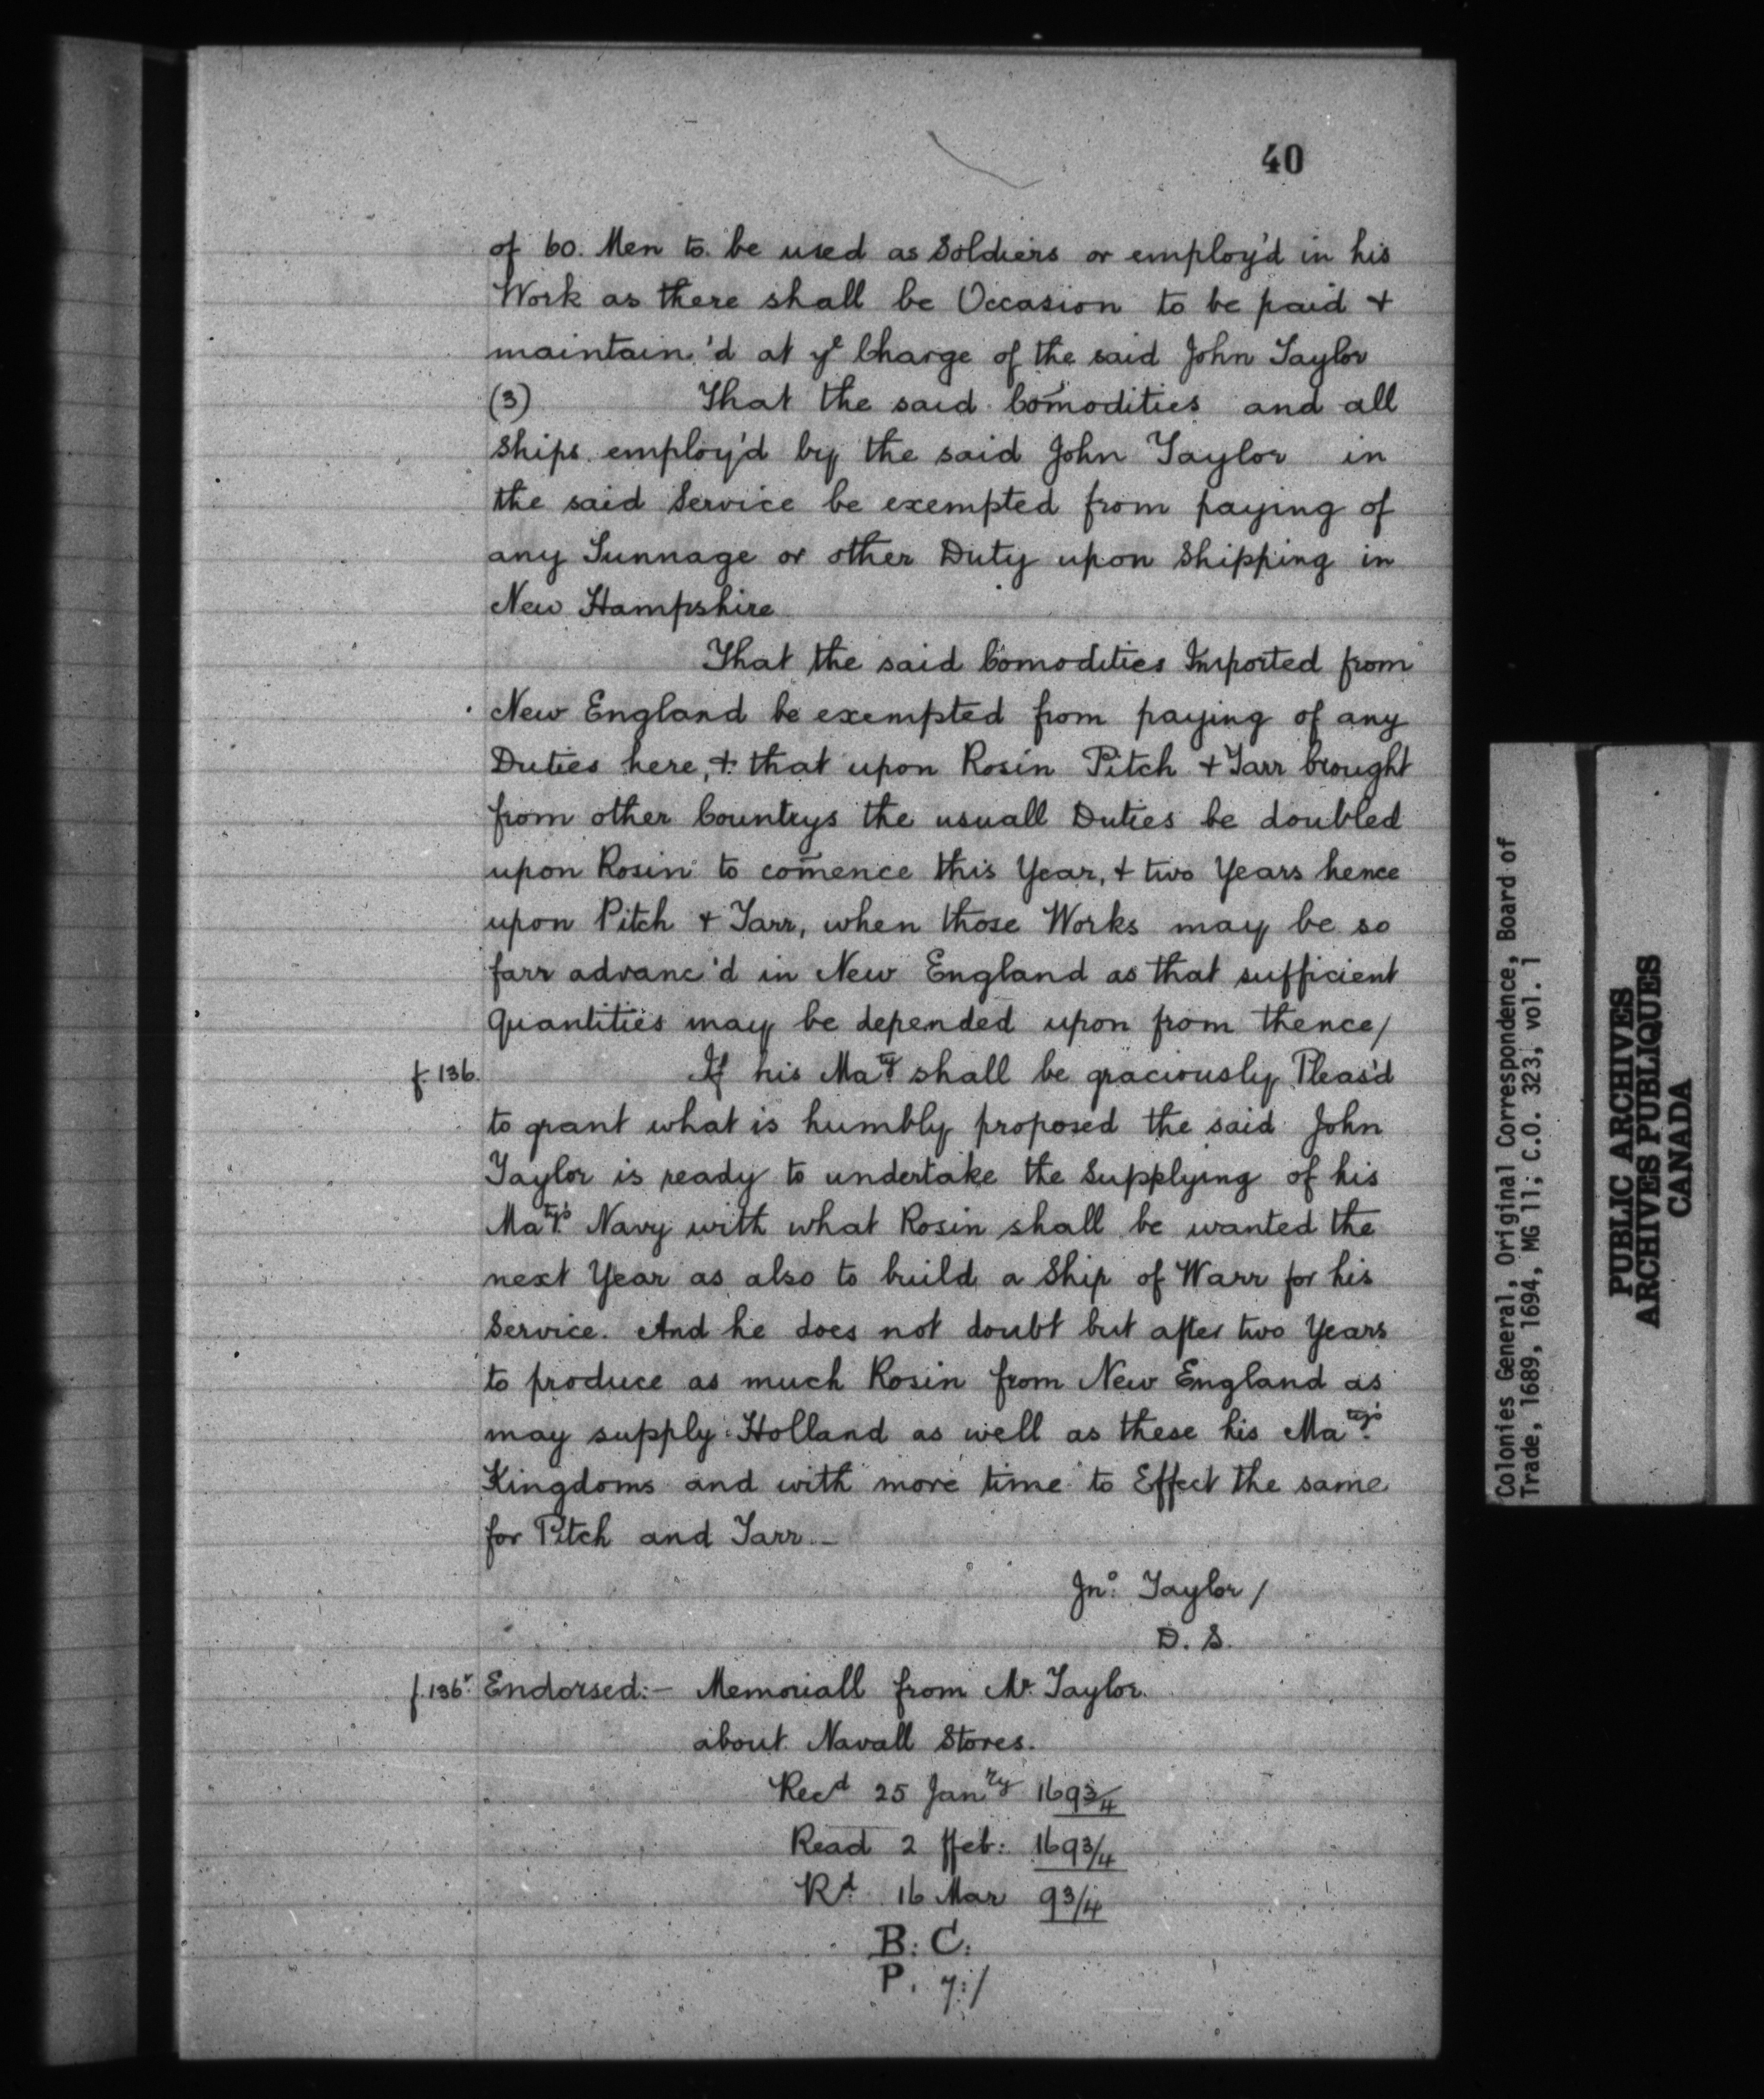 40
of 60. Men to be used as Soldiers or employ'd in his
Work as there shall be Occasion to be paid +
maintain'd at yᵉ Charge of the said John Taylor
(3) That the said Com̄odities and all
Ships employ'd by the said John Taylor in
the said Service be exempted from paying of
any Tunnage or other Duty upon Shipping in
New Hampshire
That the said Com̄odities Imported from
New England be exempted from paying of any
Duties here, + that upon Rosin Pitch + Tarr brought
from other Countrys the usuall Duties be doubled
upon Rosin to com̄ence this Year, + two Years hence
upon Pitch + Tarr, when those Works may be so
farr advanc'd in New England as that sufficient
Quantities may be depended upon from thence/
f. 136. If his Maᵗʸ shall be graciously Pleas'd
to grant what is humbly proposed the said John
Taylor is ready to undertake the Supplying of his
Maᵗʸˢ Navy with what Rosin shall be wanted the
next Year as also to build a Ship of Warr for his
Service. And he does not doubt but after two Years
to produce as much Rosin from New England as
may supply Holland as well as these his Maᵗʸˢ
Kingdoms and with more time to Effect the same
for Pitch and Tarr.-
Jnᵒ: Taylor/
D. S.
f. 136ᵛ. Endorsed:- Memoriall from Mʳ. Taylor.
about Navall Stores.
Recᵈ 25 Janʳʸ 1693/4
Read 2 ffeb: 1693/4
Rᵈ. 16 Mar 93/4
B. C.
P. 7:/
Colonies General, Original Correspondence, Board of
Trade, 1689, 1694, MG 11; C.O. 323, vol. 1
PUBLIC ARCHIVES
ARCHIVES PUBLIQUES
CANADA